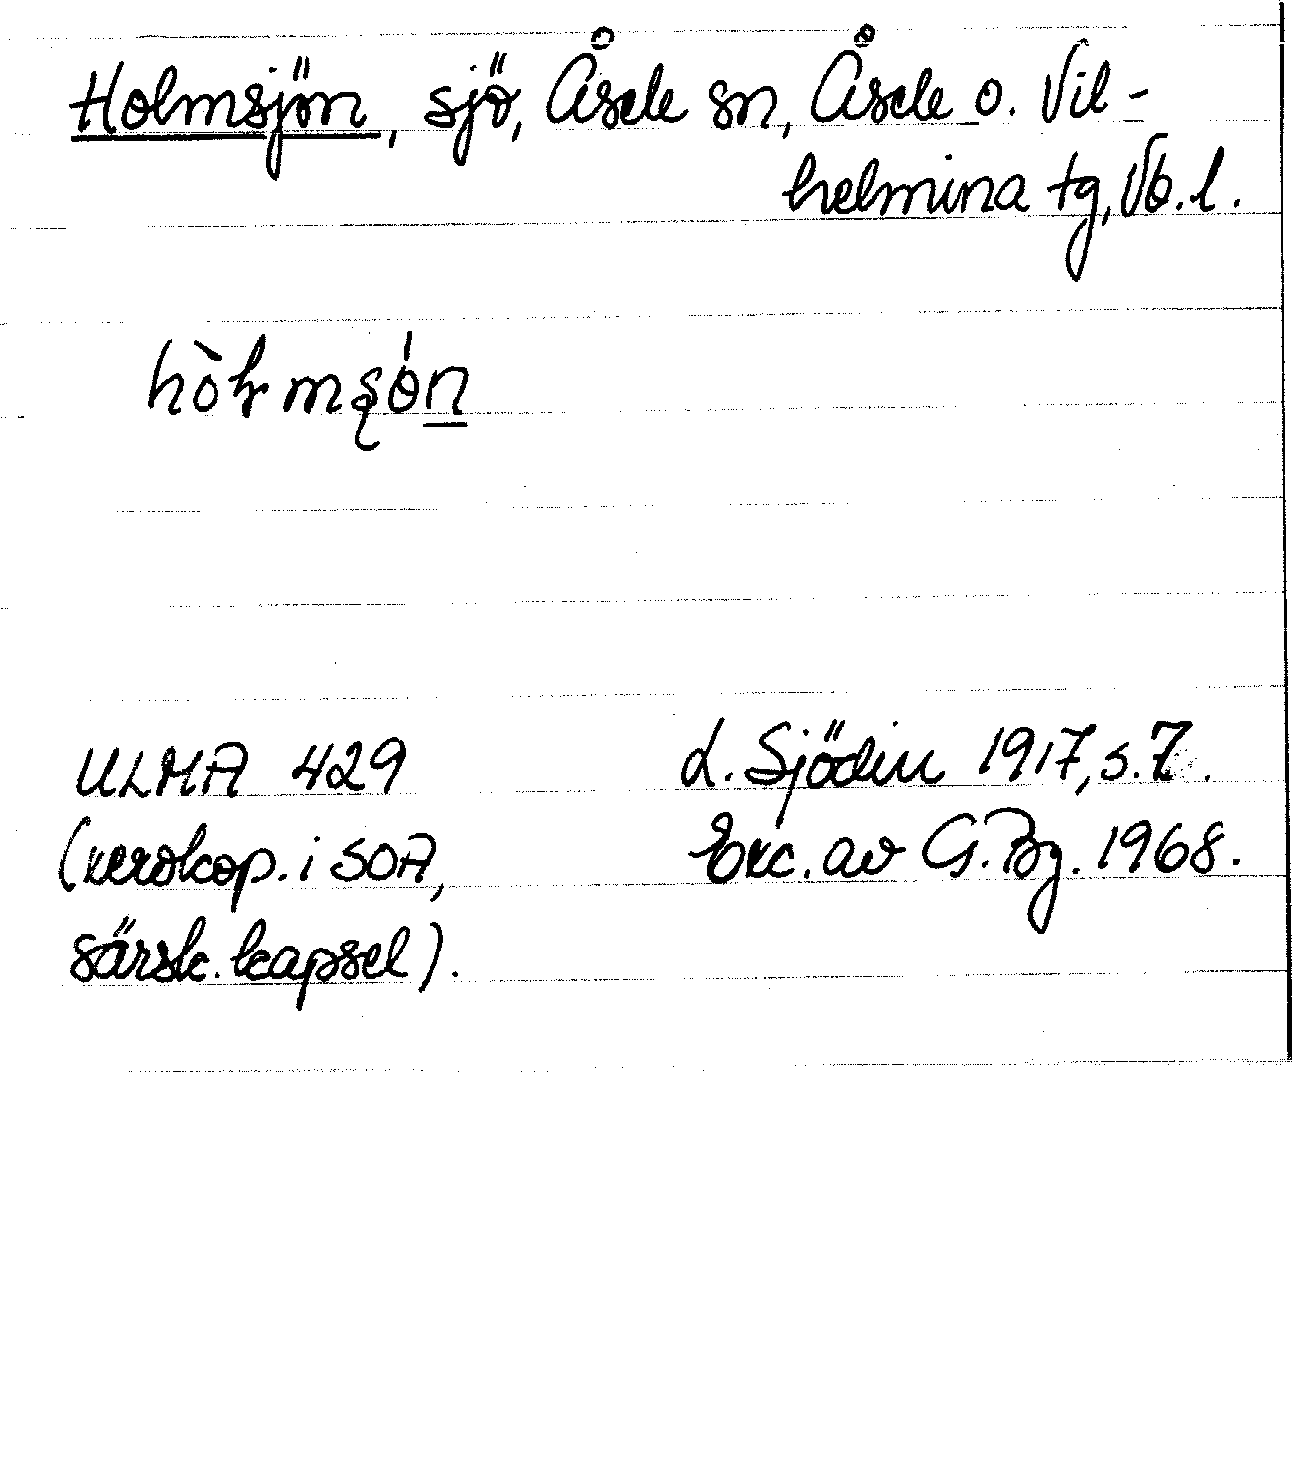 Holmsjön, sjö, Åsele sn, Åsele o. Vil-
helmina tg, Vb. l.
ULMA 429
(xerokop. i SOA,
särsk. kapsel).
L. Sjödin 1917, s. 7.
Exc. av G. Bg. 1968.